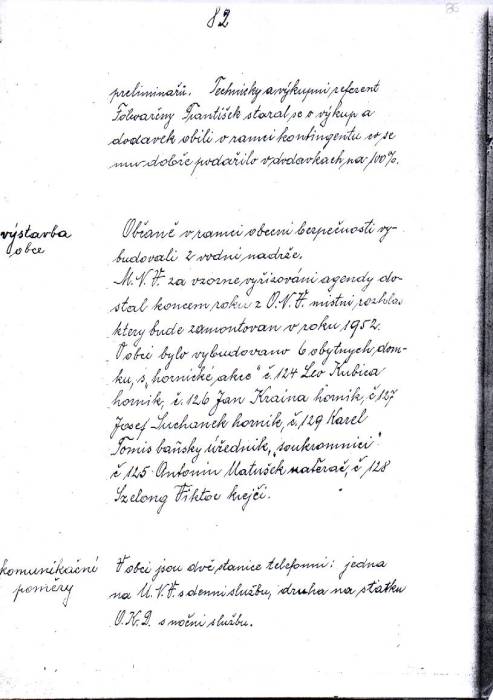 82
36
preliminářů. Technicky a výkupni referent
Folwarčny František staral se o výkup a
dodavek obili v ramci kontingentu co se
mu dobře podařilo v dodavkach na 100%.
výstavba
obce
Občaně v ramci obecni bezpečnosti vy-
budovali 2 vodni nadrže.
M.N.V. za vzorne vyřizováni agendy do-
stal koncem roku z O.N.V. mistni rozhlas
ktery bude zamontovan v roku 1952.
V obci bylo vybudovano 6 obytnych dom-
ku, s "hornické akce" č.124 Leo Kubica
hornik, č.126 Jan Kraina hornik, č 127
Josef Suchanek hornik, č.129 Karel
Tomis baňsky úředník, "soukromnici"
č 125 Antonin Matušek natěrač, č 128
Szelong Viktor krejči.
komunikačné
poměry
V obci jsou dvě stanice telefonni: jedna
na M.N.V. s denni službu, druha na statku
O.K.D. s nočni službu.